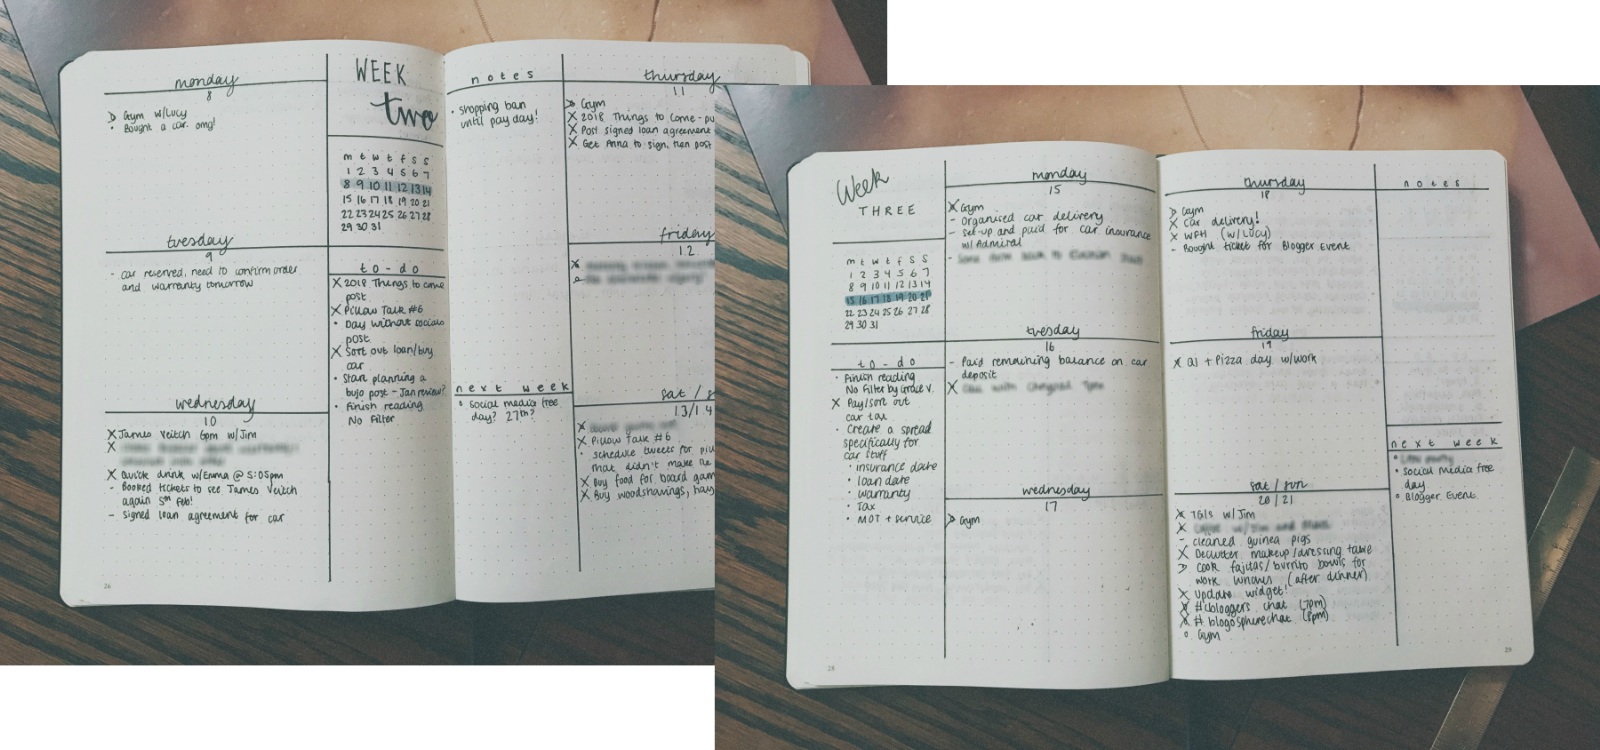 monday
8
Gym w/Lucy
Bought a car. omg!
tuesday
9
car reserved, need to confirm order
and warranty tomorrow
wednesday
10
James Veitch 6pm w/Jim
Quick drink w/Emma @ 5:05pm
Booked tickets to see James Veitch
again 5th Feb!
signed loan agreement for car
26
WEEK
two
m t w t f s s
1 2 3 4 5 6 7
8 9 10 11 12 13 14
15 16 17 18 19 20 21
22 23 24 25 26 27 28
29 30 31
to-do
2018 Things to come
post
Pillow Talk #6
Day without socials
post
Sort out loan/buy
car
Start planning a
bujo post - Jan review?
Finish reading
No Filter
notes
shopping ban
until pay day!
next week
social media free
day? 27th?
thursday
11
Gym
2018 Things to come - pu
Post signed loan agreement
Get Anna to sign, then post
friday
12
sat / s
13/14
Pillow Talk #6
schedule tweets for
that didn't make
Buy food for board gam
Buy woodshavings, hay
Week
THREE
m t w t f s s
1 2 3 4 5 6 7
8 9 10 11 12 13 14
15 16 17 18 19 20 21
22 23 24 25 26 27 28
29 30 31
to-do
Finish reading
No Filter by Grace V.
Pay/sort out
car tax
Create a spread
specifically for
car stuff
insurance date
loan date
warranty
Tax
MOT + service
28
monday
15
Gym
- Organised car delivery
- Set-up and paid for car insurance
w/ Admiral
tuesday
16
- Paid remaining balance on car
deposit
wednesday
17
Gym
thursday
18
Gym
Car delivery!
WFH (w/Lucy)
- Bought ticket for Blogger Event
friday
19
+ Pizza day w/work
sat / sun
20/21
TGIS w/Jim
- cleaned guinea pigs
Declutter makeup/dressing table
Cook fajitas/burrito bowls for
work lunches (after dinner)
Update widget!
bloggers chat (7pm)
# blogosphere chat (8pm)
Gym
notes
next week
social media free
day
Blogger Event
29